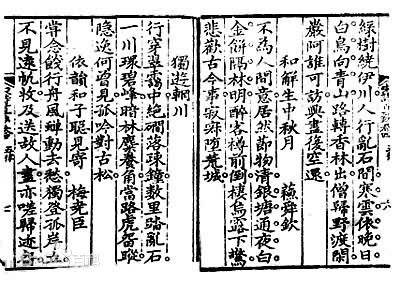 綠樹繞伊川人行亂石間寒雲依晚日
白鳥向青山路轉香林出僧歸野渡閑
嚴阿誰可訪興盡復空還
和解生中秋月 蘇舜欽
不爲人間意居然節物清銀塘通夜白
金餅隔林明醉客樽前倒棲烏露下驚
悲歡古今事寂寂墮荒城
獨遊輞川
行穿翠靄中絕磵落疎鐘數里踏亂石
一川環碧峰暗林麋養角當路虎留蹤
隱逸何曾見孤吟對古松
依韻和子聰見寄 梅堯臣
嘗念餞行舟風蟬動去愁獨登孤岸立
不見遠帆收及送故人盡亦嗟歸迹